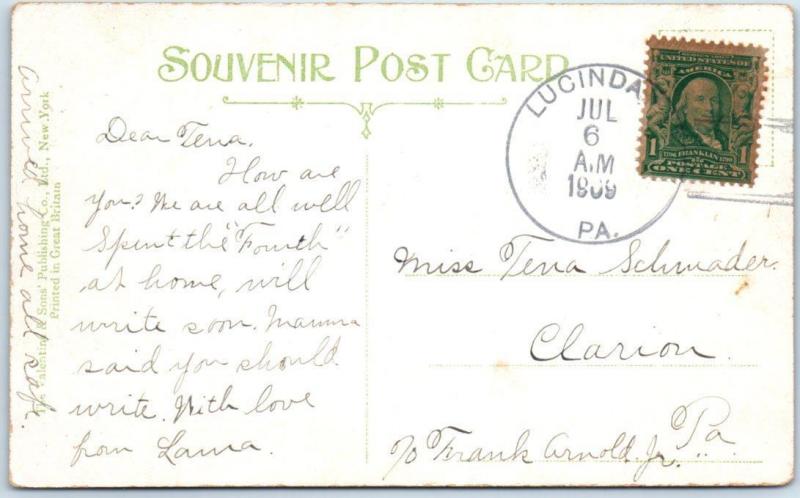 SOUVENIR POST CARD
LUCINDA
JUL
6
A.M
1909
PA.
UNITED STATES OF
AMERICA
1 FRANKLIN 1
POSTAGE
ONE CENT
Dear Tena.
How are
you? We are all well
Spent the "Fourth"
at home, will
write soon. Mamma
said you should
write. With love
from Laura.
arrived home all safe.
The Valentine & Sons' Publishing Co., Ltd., New York
Printed in Great Britain
Miss Tena Schmader.
Clarion.
Pa.
c/o Frank Arnold. Jr.